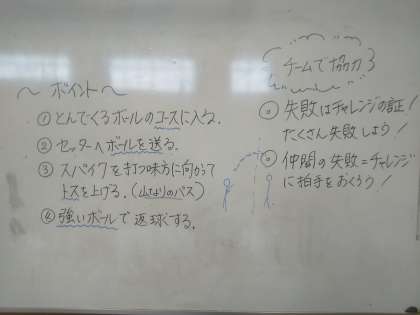 〜 ポイント 〜
① とんでくるボールのコースに入る。
② セッターへボールを送る。
③ スパイクを打つ味方に向かって
トスを上げる。(山なりのパス)
④ 強いボールで返球する。
チームで協力
◎ 失敗はチャレンジの証!
たくさん失敗しよう!
◎ 仲間の失敗=チャレンジ
に拍手をおくろう!